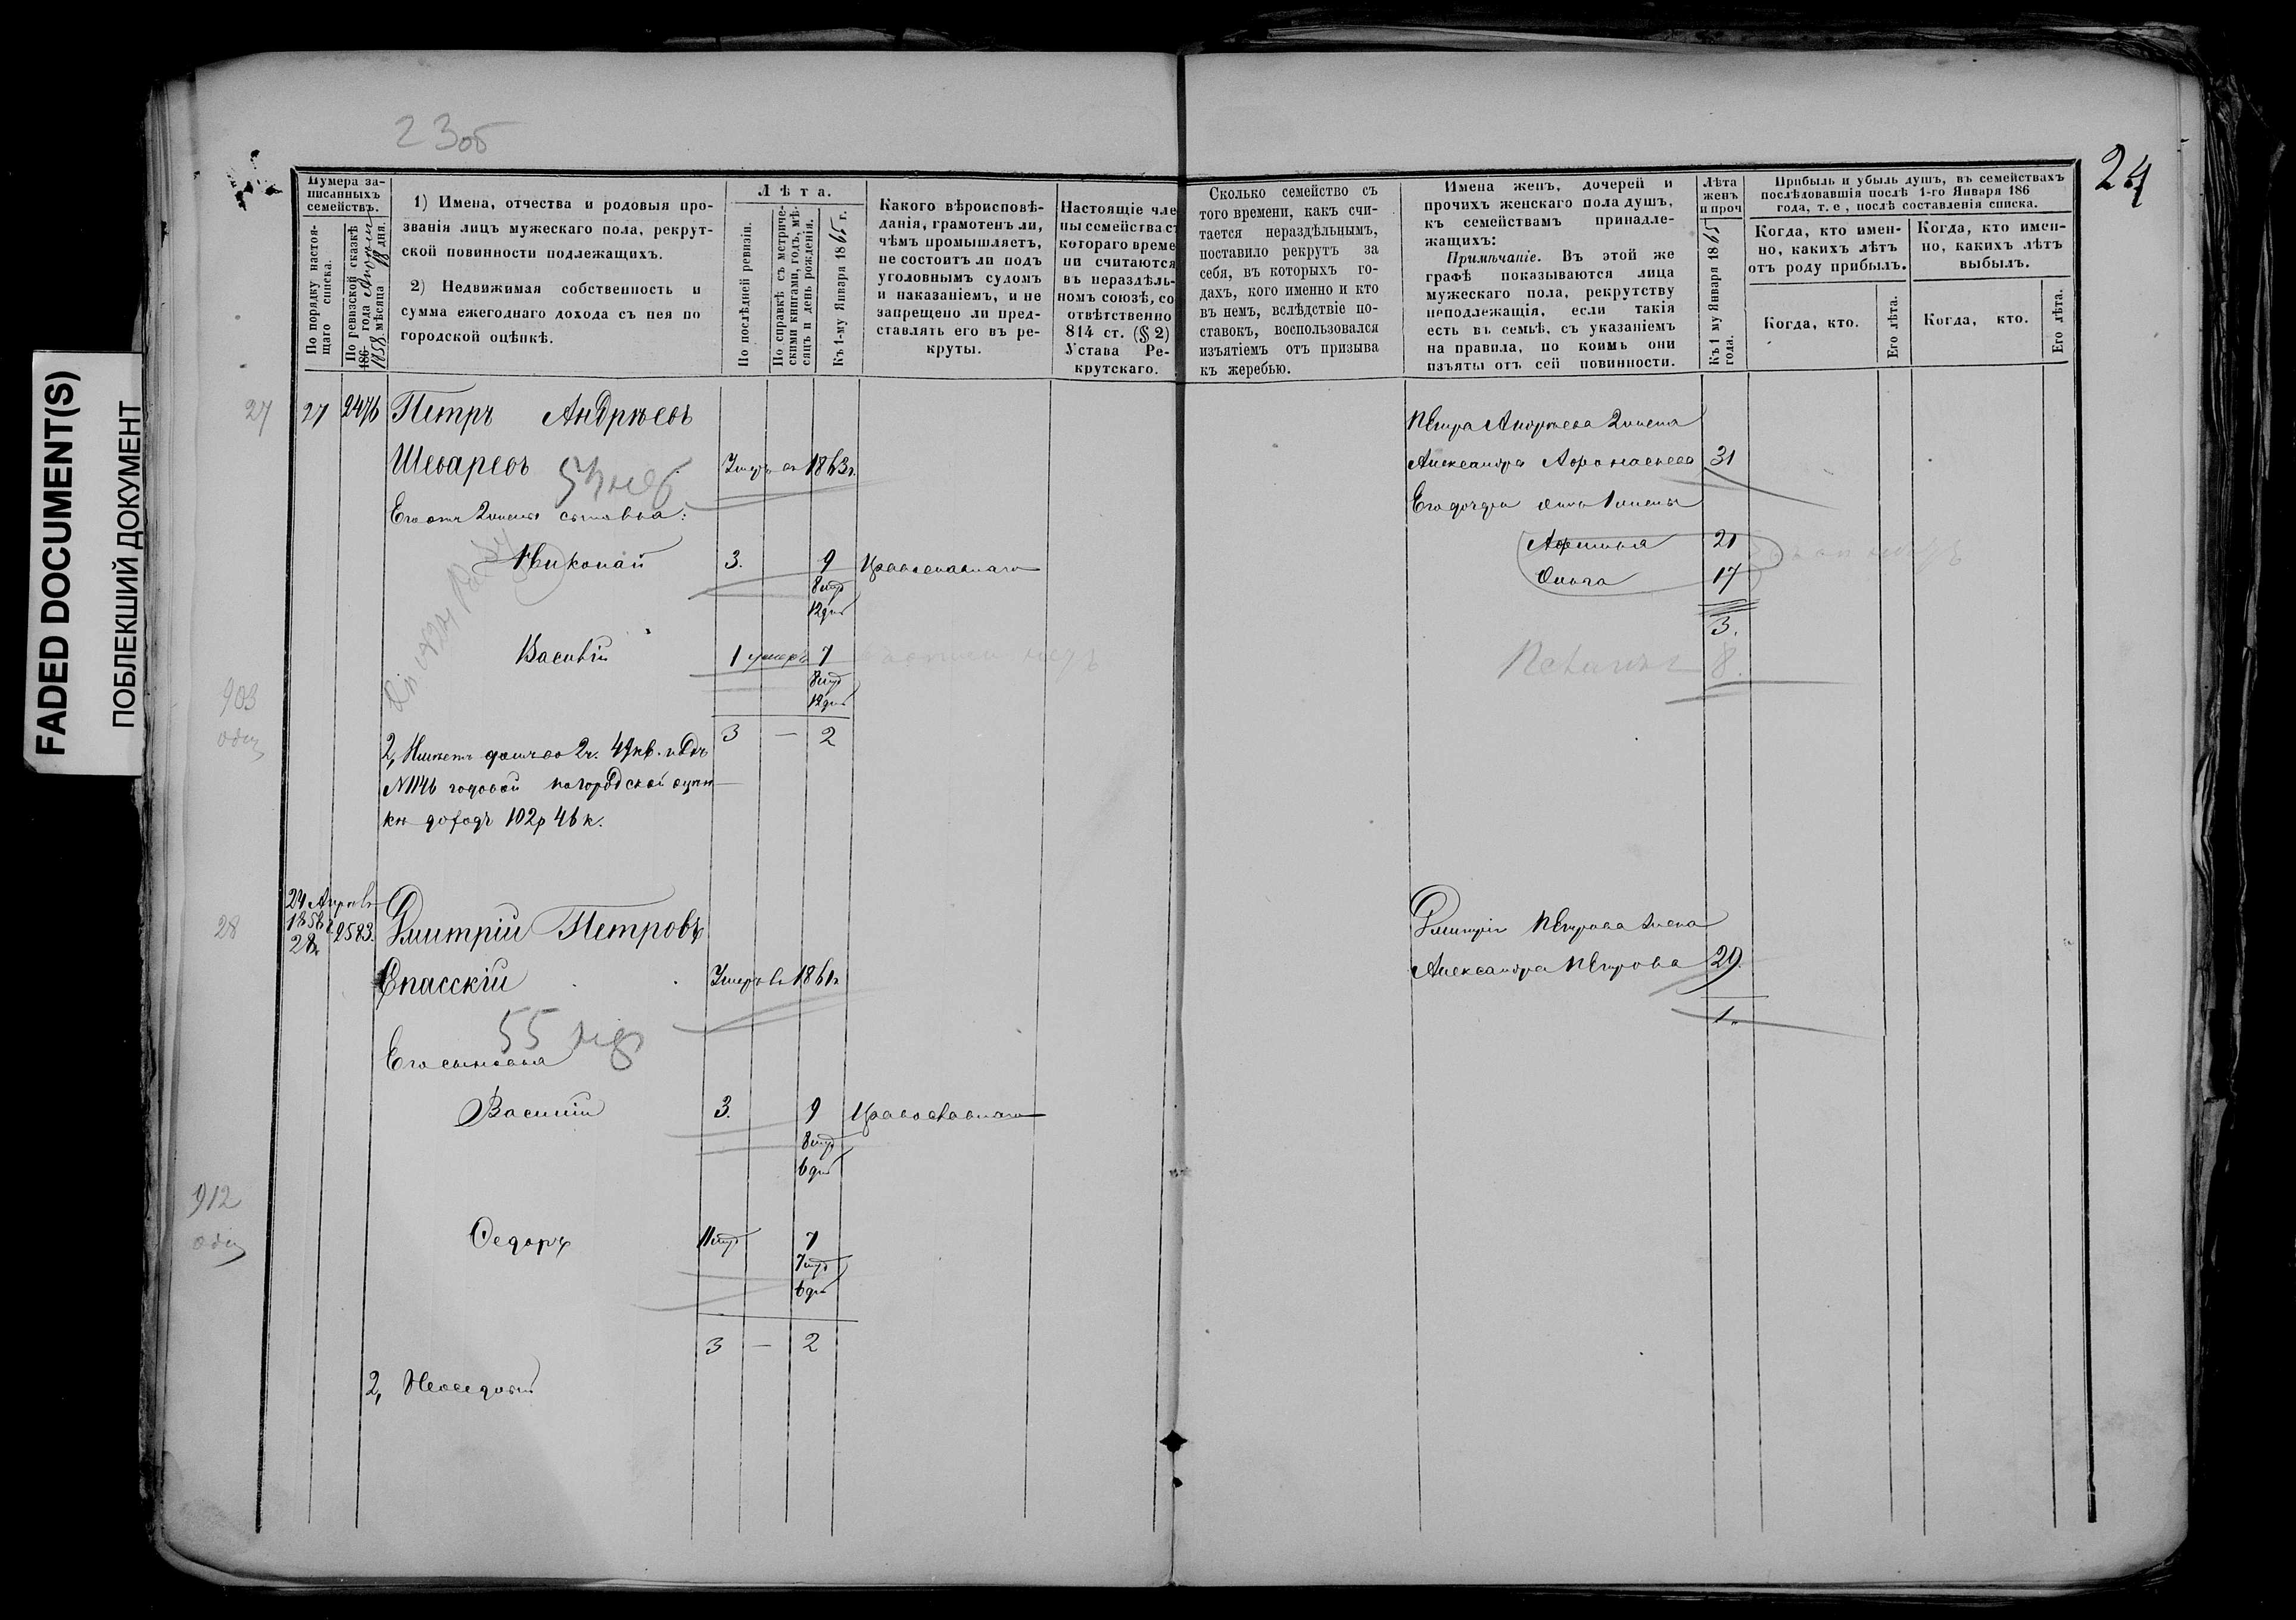 FADED DOCUMENT(S)
ПОБЛЕКШИЙ ДОКУМЕНТ
23об
24
Нумера за-
писанныхъ
семействъ.
По порядку настоя-
щаго списка.
По ревизской сказкѣ
186 года
1858 мѣсяца 18 дня.
1) Имена, отчества и родовыя про-
званія лицъ мужескаго пола, рекрут-
ской повинности подлежащихъ.
2) Недвижимая собственность и
сумма ежегоднаго дохода съ нея по
городской оцѣнкѣ.
Лѣта.
По послѣдней ревизіи.
По справкѣ съ метриче-
скими книгами, годъ, мѣ-
сяцъ и день рожденія.
Къ 1-му Января 1865 г.
Какого вѣроисповѣ-
данія, грамотенъ ли,
чѣмъ промышляетъ,
не состоитъ ли подъ
уголовнымъ судомъ
и наказаніемъ, и не
запрещено ли пред-
ставлять его въ ре-
круты.
Настоящіе чле
ны семейства съ
котораго време
ни считаются
въ нераздѣль-
номъ союзѣ, со
отвѣтственно
814 ст. (§ 2)
Устава Ре-
крутскаго.
Сколько семейство съ
того времени, какъ счи-
тается нераздѣльнымъ,
поставило рекрутъ за
себя, въ которыхъ го-
дахъ, кого именно и кто
въ немъ, вслѣдствіе по-
ставокъ, воспользовался
изъятіемъ отъ призыва
къ жеребью.
Имена женъ, дочерей и
прочихъ женскаго пола душъ,
къ семействамъ принадле-
жащихъ:
Примѣчаніе. Въ этой же
графѣ показываются лица
мужескаго пола, рекрутству
неподлежащія, если такія
есть въ семьѣ, съ указаніемъ
на правила, по коимъ они
изъяты отъ сей повинности.
Лѣта
женъ
и проч
Къ 1 му Января 1865
года.
Прибыль и убыль душъ, въ семействахъ
послѣдовавшія послѣ 1-го Января 186
года, т. е, послѣ составленія списка.
Когда, кто имен-
но, какихъ лѣтъ
отъ роду прибылъ.
Когда, кто имен-
но, какихъ лѣтъ
выбылъ.
Когда, кто.
Его лѣта.
Когда, кто.
Его лѣта.
27 27 2476 Петръ Андрѣевъ
Шеваревъ Умеръ въ 1863г.
54
Его отъ 2 жены сыновья:
Николай 3. 9 Православнаго
8 мцъ
12 дн
Василій 1 умеръ 7
8 мцъ
12 дн
3 — 2
903
2, Имѣетъ домъ во 2ч. 49 кв. подъ
№1146 годовой по городской оцѣн
кѣ доходъ 102р 46к.
Петра Андреева 2 жена
Александра Афанасьева 31
Его дочери отъ 1 жены
21
Ольга 17
3.
8.
28 24 Апрѣля
1858г 2583. Дмитрій Петровъ
28
Спасскій Умеръ въ 1861г
55
Его сыновья
Василій 3. 9 Православнаго
8 мцъ
6 дн
912
Ѳедоръ 11 мцъ 7
7 мцъ
6 дн
3 — 2
2,
Дмитрія Петрова жена
Александра Петрова 29.
1.